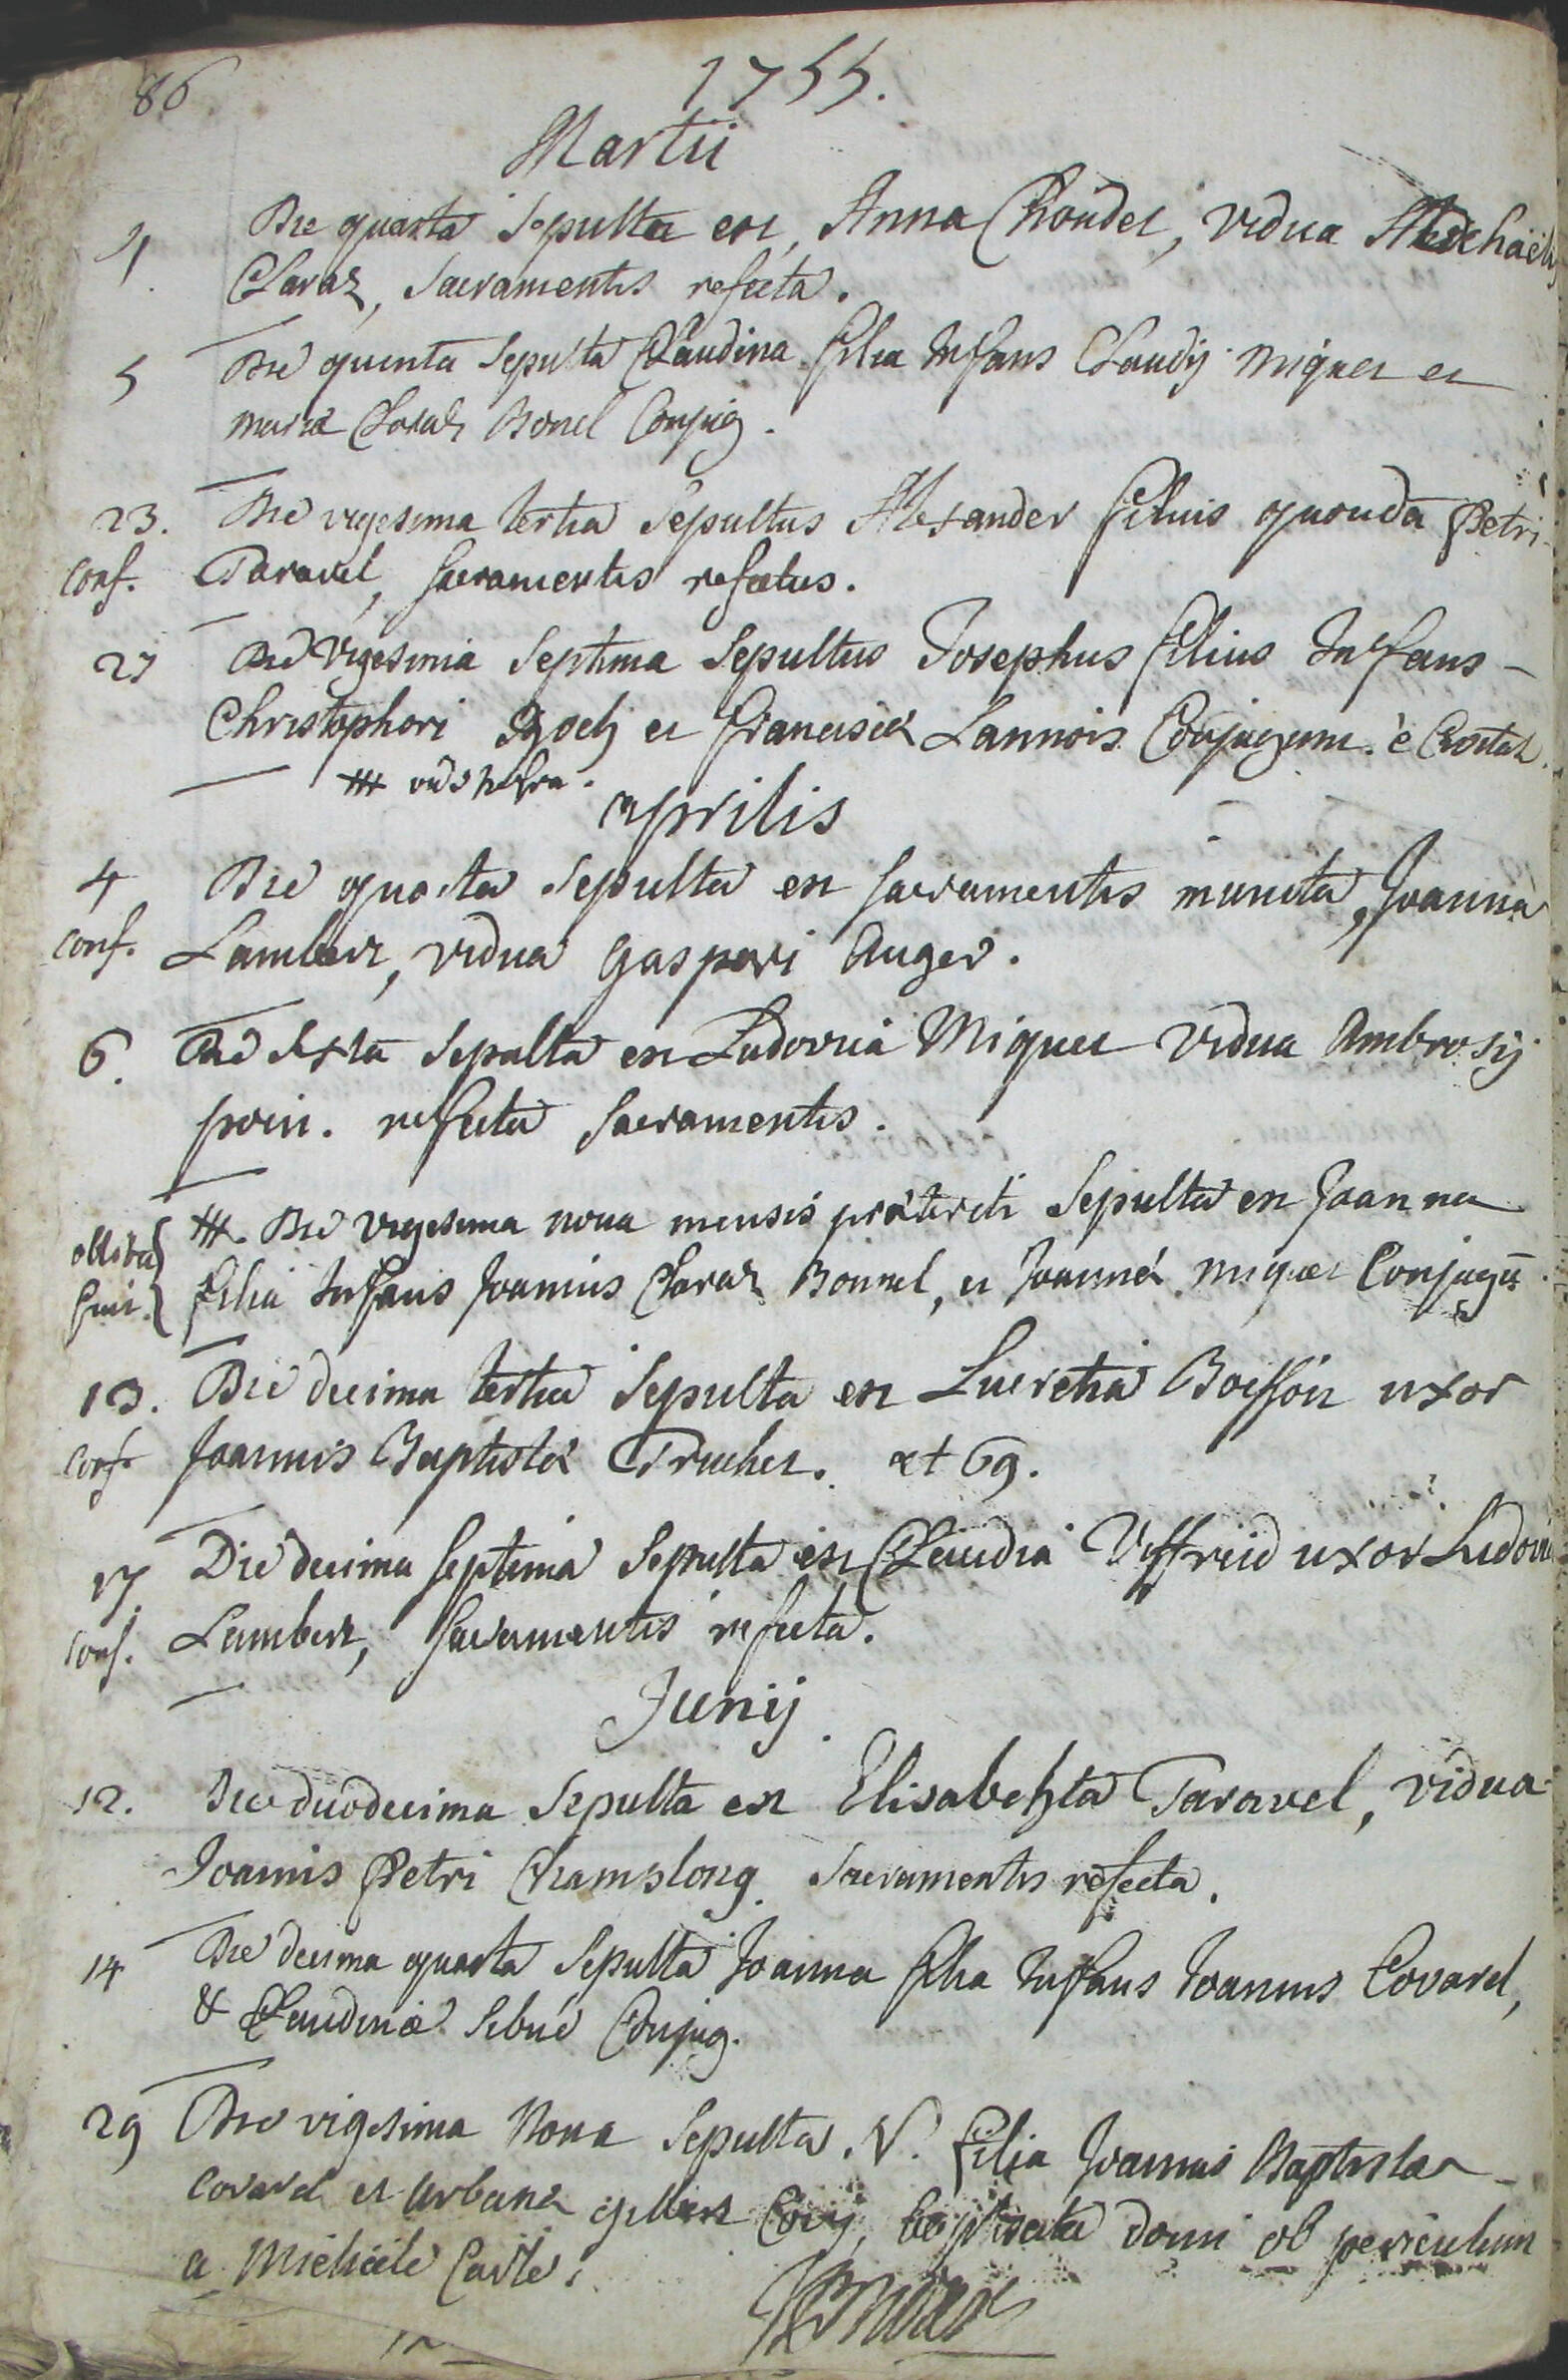 86
1755.
Martii
4. Die quarta Sepulta est, Anna Choudet, vidua Michaëlis
Claraz, Sacramentis refecta.
5 Die quinta Sepulta Claudina filia Infans Claudij Miquet et
mariæ Claraz Bonel Conjug.
23. Die vigesima tertia Sepultus Alexander filius quondā Petri
Conf. Taravel, Sacramentis refectus.
27 Die Vigesima Septima Sepultus Josephus filius Infans
Christophori et franciscæ Lannois Conjugum. è
vide infra.
Aprilis
4 Die quarta Sepulta est Sacramentis munita, Joanna
Conf. Lambert, vidua Gaspari Auger.
6. Die Sexta Sepulta est Ludovica Miquet vidua Ambrosij
poin. refecta Sacramentis.
ollita fuit. Die vigesima nona mensis præteriti Sepulta est Joanna
filia Infans Joannis Claraz Bonnel, et Joannæ miquet Conjugū.
13. Die decima tertia Sepulta est Lucretia Boisson uxor
Conf. Joannis Baptistæ Truchet. æt 69.
17 Die decima Septima Sepulta est Claudia Viffreid uxor Ludovici
Conf. Lambert, Sacramentis refecta.
Junij.
12. Die duodecima Sepulta est Elisabehta Taravel, vidua
Joannis Petri Champlong. Sacramentis refecta.
14 Die decima quarta Sepulta Joanna filia Infans Joannis Covarel,
& Claudinæ Sibue Conjug.
29 Die vigesima Nona Sepulta. N. filia Joannis Baptistæ
Covarel et Urbanæ gilbert Conj, baptisata domi ob periculum
a Michaële Carle.